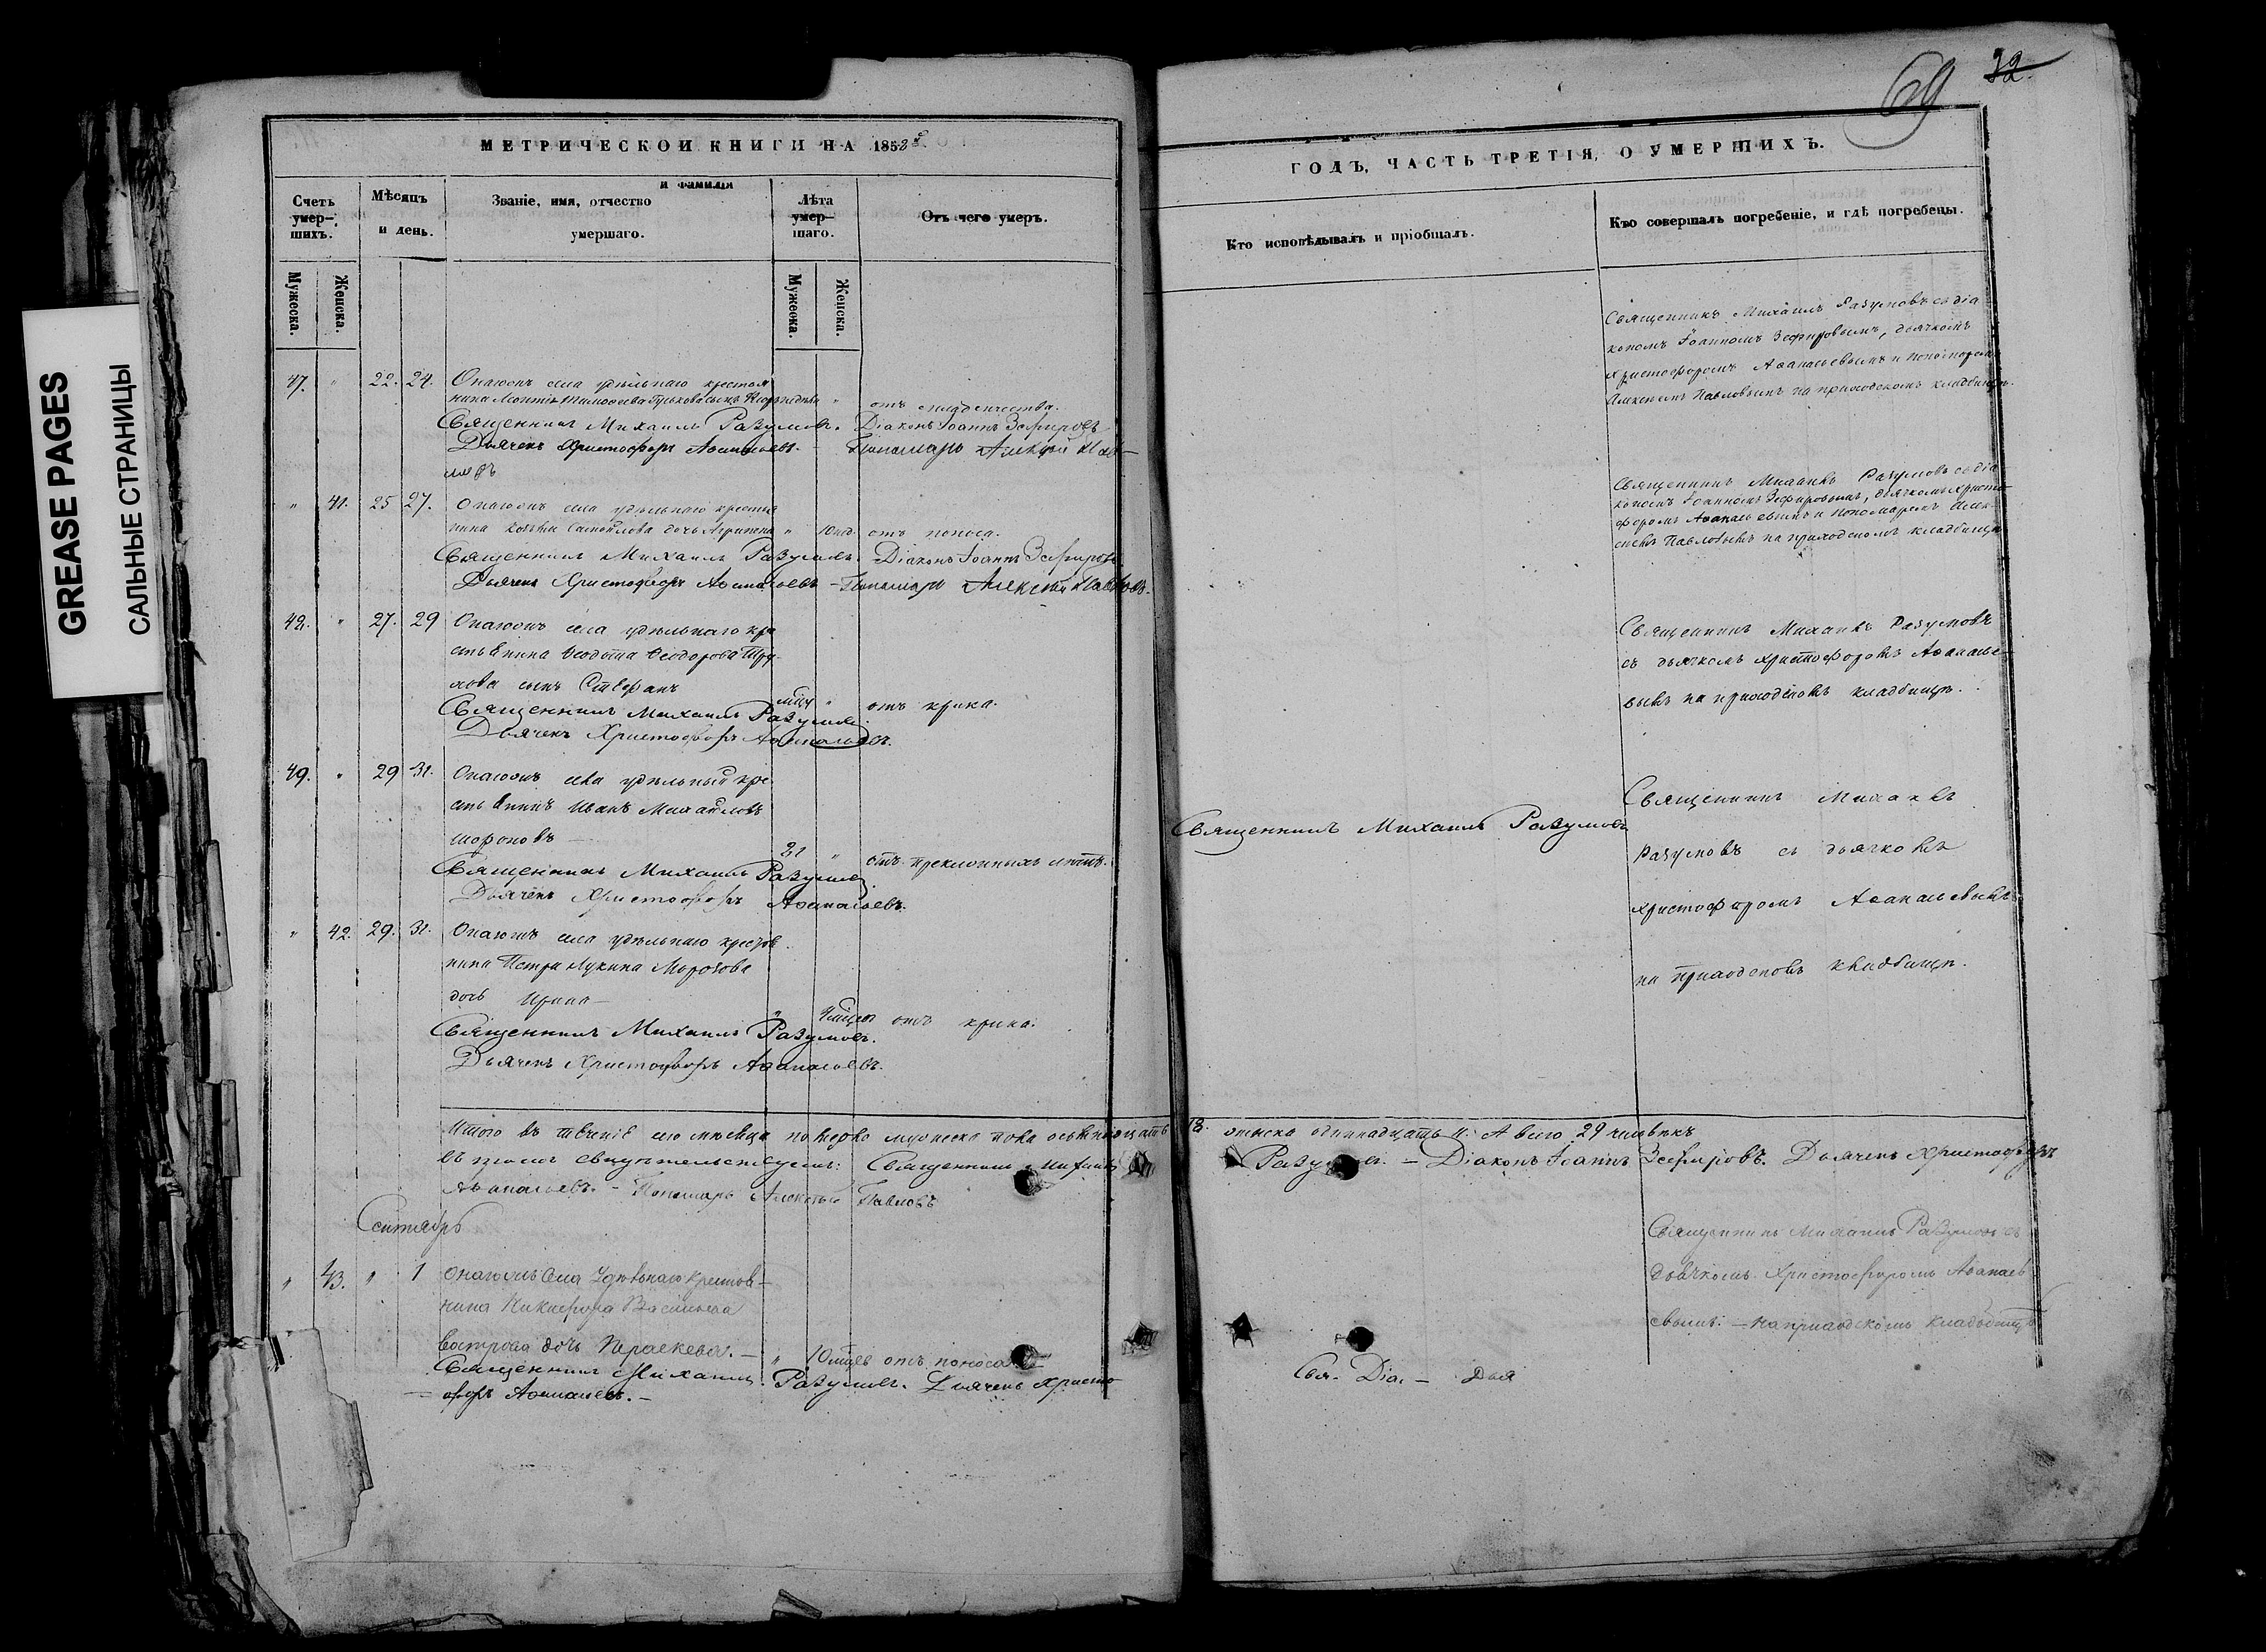 GREASE PAGES
САЛЬНЫЕ СТРАНИЦЫ
69 32.
МЕТРИЧЕСКОЙ КНИГИ НА 1858й
ГОДЪ, ЧАСТЬ ТРЕТІЯ, О УМЕРШИХЪ.
Счетъ умершихъ.
Мѣсяцъ и день.
Званіе, имя, отчество и фамилія умершаго.
Лѣта умершаго.
Отъ чего умеръ.
Кто исповѣдывалъ и пріобщалъ.
Кто совершалъ погребеніе, и гдѣ погребены.
Мужеска. Женска. Мужеска. Женска.
Священникъ Михаилъ Разумовъ съ діа
кономъ Іоанномъ Зефировымъ, дьячкомъ
Христофоромъ Аѳанасьевымъ и пономаремъ
Алексѣемъ Павловымъ на приходскомъ кладбищѣ.
47. " 22. 24. Онагожъ села удѣльнаго крестья
нина Тимоѳеева сынъ " отъ младенчества.
Священникъ Михаилъ Разумовъ. Діаконъ Іоаннъ Зефировъ
Дьячекъ Христофоръ Аѳанасьевъ. – Пономарь Алексѣй Пав–
ловъ
" 41. 25 27. Онагожъ села удѣльнаго крестья
нина Самойлова дочь Агрипена " отъ поноса.
Священникъ Михаилъ Разумовъ. Діаконъ Іоаннъ Зефировъ
Дьячекъ Христофоръ Аѳанасьевъ – Пономарь Алексѣй Павловъ.
Священникъ Михаилъ Разумовъ съ діа
кономъ Іоанномъ Зефировымъ, дьячкомъ Христо
форомъ Аѳанасьевымъ и пономаремъ Алек
сѣемъ Павловымъ на приходскомъ кладбищѣ
48. " 27. 29 Онагожъ села удѣльнаго кре
стьянина Ѳеодота Ѳеодорова
сынъ Стефанъ
" отъ крика.
Священникъ Михаилъ Разумовъ.
Дьячекъ Христофоръ Аѳанасьевъ.
Священникъ Михаилъ Разумовъ
съ дьячкомъ Христофоромъ Аѳанасье–
вымъ на приходскомъ кладбищѣ.
49. " 29 31. Онагожъ села удѣльный кре
стьянинъ Иванъ Михайловъ
" отъ преклонныхъ лѣтъ.
Священникъ Михаилъ Разумовъ
Дьячекъ Христофоръ Аѳанасьевъ.
Священникъ Михаилъ Разумовъ
Священникъ Михаилъ
Разумовъ съ дьячкомъ
Христофоромъ Аѳанасьевымъ
на приходскомъ кладбищѣ.
" 42. 29. 31. Онагожъ села удѣльнаго крестья
нина Петра Лукина Морозова
дочь Ирина –
" отъ крика.
Священникъ Михаилъ Разумовъ.
Дьячекъ Христофоръ Аѳанасьевъ.
Итого въ теченіе сего мѣсяца померло мужеска пола осьмнадцать 18. женска одиннадцать 11. А всего 29 человѣкъ
въ чемъ свидѣтельствуемъ: Священникъ Михаилъ Разумовъ. – Діаконъ Іоаннъ Зефировъ. Дьячекъ Христофоръ
Аѳанасьевъ. – Пономарь Алексѣй Павловъ
Сентябрь
" 43. " 1 Онагожъ села Удѣльнаго крестья–
нина Никифора Васильева
Вострова дочь Параскева. – " 10 мцевъ отъ поноса
Священникъ Михаилъ Разумовъ. Дьячекъ Христо
форъ Аѳанасьевъ. –
Священникъ Михаилъ Разумовъ съ
дьячкомъ Христофоромъ Аѳанась
евымъ. – на приходскомъ кладбищѣ
Свя. Діа. – Дья